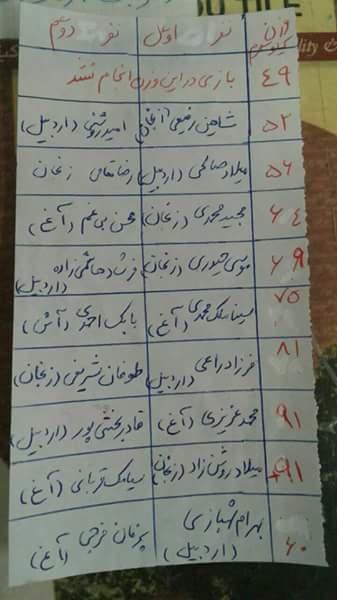 وزن کیلوگرم نفر اول نفر دوم
۴۹ بازی در این وزن انجام نشد
۵۲ شاهین رفیعی (زنجان) امید (اردبیل)
۵۶ میلاد صالحی (اردبیل) رضا زنجان
۶۴ مجید محمدی (زنجان) محسن بی غم (آ غ)
۶۹ موسی حیدری (زنجان) فرشاد هاشمی زاده (اردبیل)
۷۵ سینا ملک محمدی (آ غ) بابک احمدی (آ ش)
۸۱ فرزاد زراعی (اردبیل) طوفان شریفی (زنجان)
۹۱ محمد عزیزی (آ غ) قادر بخشی پور (اردبیل)
+۹۱ میلاد روشن زاد (زنجان) سیامک قربانی (آ غ)
۶۰ بهرام شهبازی (اردبیل) پژمان فرجی (آ غ)
YOU TILE
ality